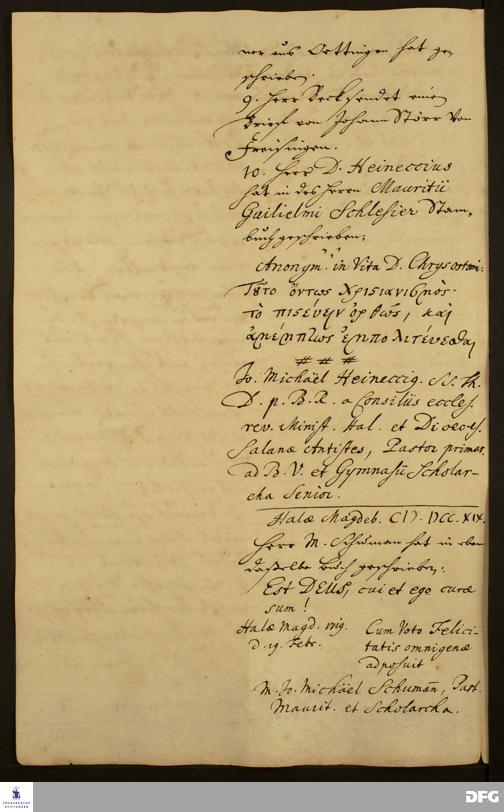 ner aus Oettingen hat ge-
schrieben.
9. Herr Beck sendet einen
Brief von Johann Störr von
Freisingen.
10. Herr D. Heineccius
hat in des Herrn Mauritii
Guilielmi Schlesier Stam-
buch geschrieben:
Anonym. in Vita D. Chrysostomi:
Τȣτο ὄντως Χριστιανισμὸς·
τὸ πιστέυειν ὀρθῶς, καὶ
ἐμπολιτέυεσθαι
Jo. Michaël Heineccig. SS. Th.
D. p. B. R. a Consiliis eccles.
rev. Minist. Hal. et Dioeces.
Salanae Antistes, Pastor primar.
ad B. V. et Gymnasii Scholar-
cha Senior.
Halae Magdeb. CIↃ. IↃCC. XIX.
Herr M. Schuman hat in eben
dasselbe buch geschrieben:
Est DEUS, cui et ego curae
sum!
Halae Magd. 1719.
d. 19. Febr.
Cum Voto Felici-
tatis omnigenae
adposuit
M. Jo. Michaël Schumañ, Past.
Maurit. et Scholarcha.
FRANCKESCHE
STIFTUNGEN
DFG